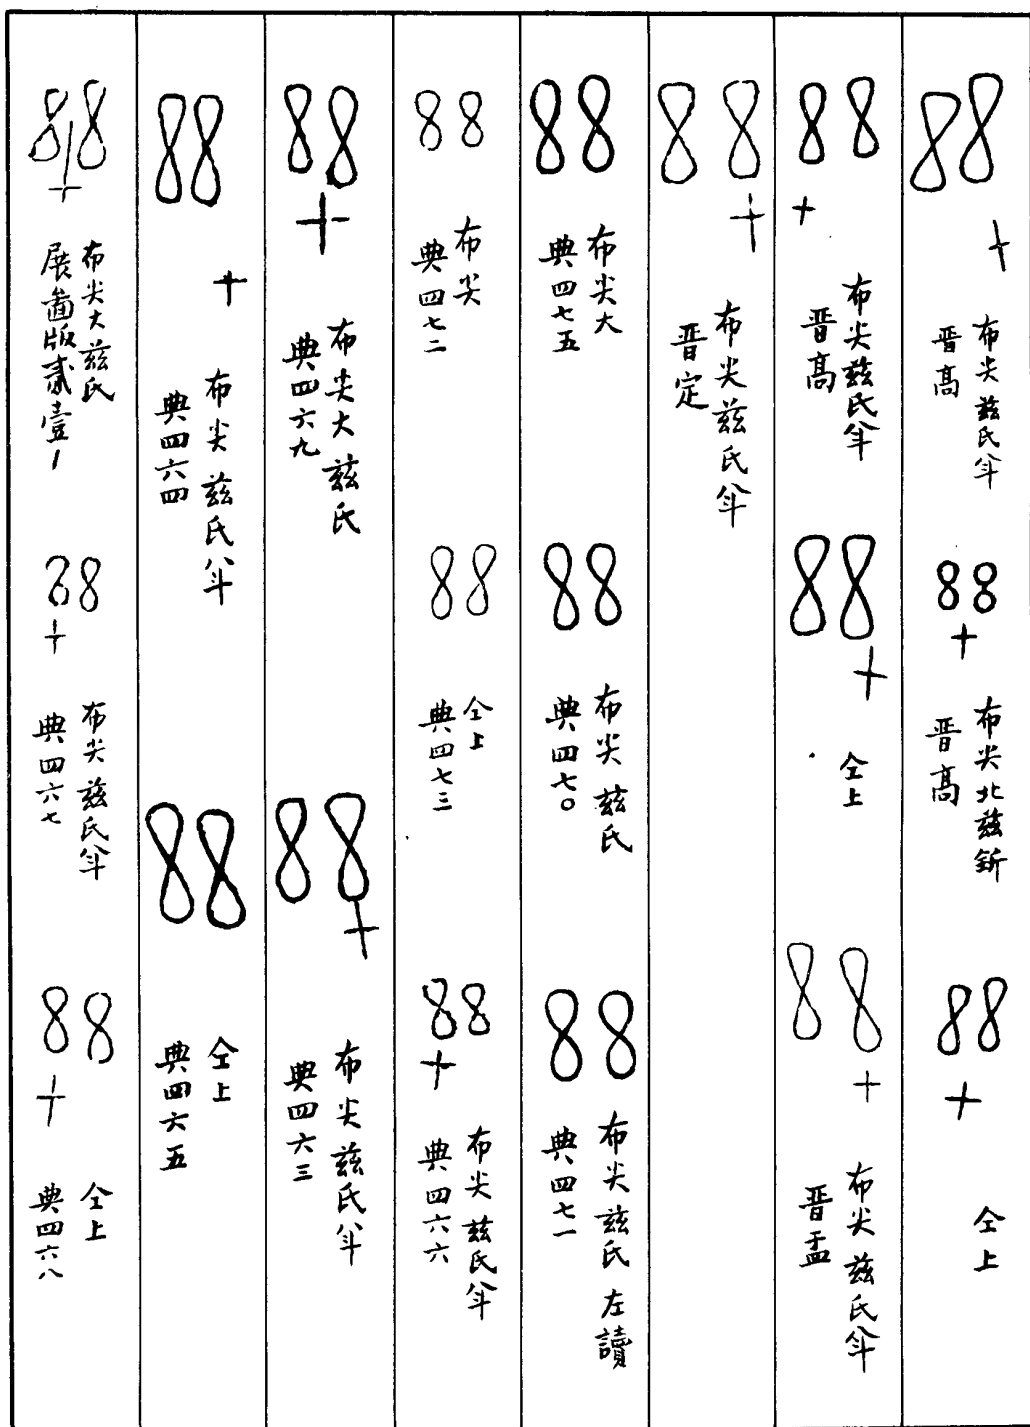 布尖兹氏半
晋高
布尖北兹釿
晋高
仝上
布尖兹氏半
晋高
仝上
布尖兹氏半
晋盂
布尖兹氏半
晋定
布尖大
典四七五
布尖兹氏
典四七〇
布尖兹氏左讀
典四七一
布尖
典四七二
仝上
典四七三
布尖兹氏半
典四六六
布尖大兹氏
典四六九
布尖兹氏半
典四六三
布尖兹氏半
典四六四
仝上
典四六五
布尖大兹氏
展啚版貳壹1
布尖兹氏半
典四六七
仝上
典四六八